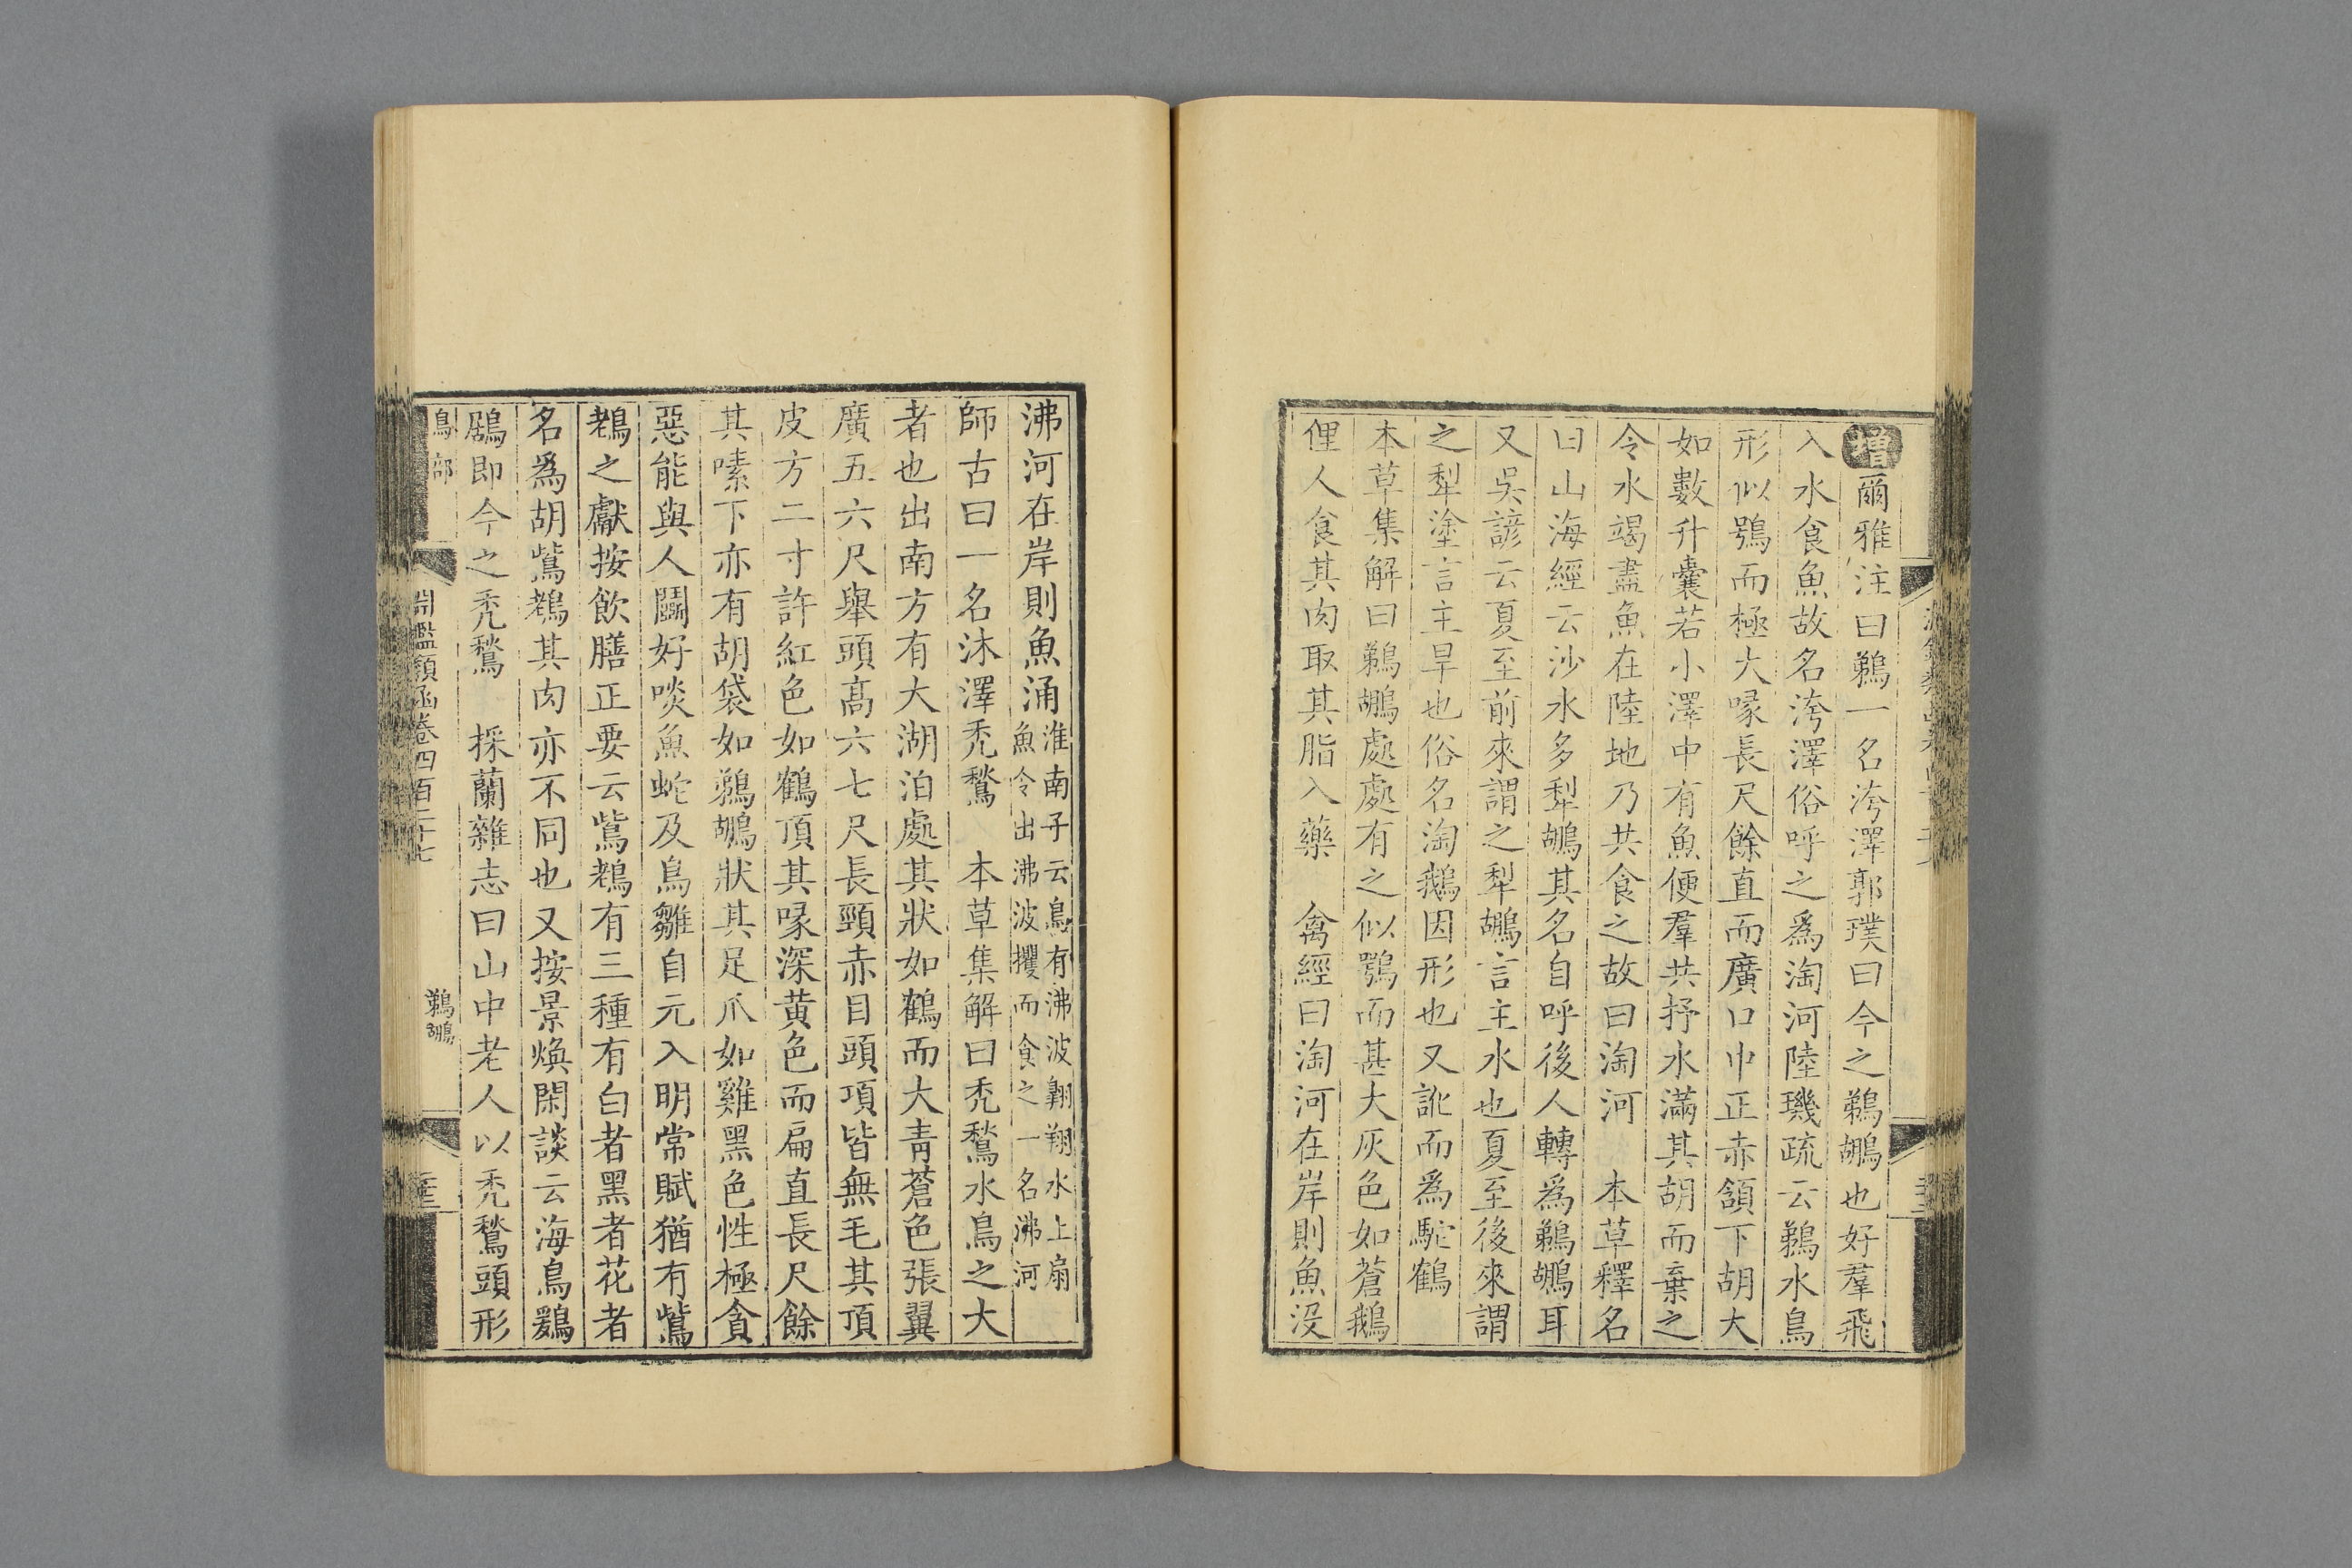 增爾雅注曰鵜一名洿澤郭璞曰今之鵜鶘也好羣飛
入水食魚故名洿澤俗呼之爲淘河陸璣疏云鵜水鳥
形似鶚而極大喙長尺餘直而廣口中正赤頷下胡大
如數升囊若小澤中有魚便羣共抒水滿其胡而棄之
令水竭盡魚在陸地乃共食之故曰淘河　本草釋名
曰山海經云沙水多犁鶘其名自呼後人轉爲鵜鶘耳
又吳諺云夏至前來謂之犁鶘言主水也夏至後來謂
之犁塗言主旱也俗名淘鵝因形也又訛而爲駝鶴
本草集解曰鵜鶘處處有之似鶚而甚大灰色如蒼鵝
俚人食其肉取其脂入藥　禽經曰淘河在岸則魚没
沸河在岸則魚涌淮南子云鳥有沸波翺翔水上扇
魚令出沸波攫而食之一名沸河
師古曰一名沐澤禿鶖　本草集解曰禿鶖水鳥之大
者也出南方有大湖泊處其狀如鶴而大青蒼色張翼
廣五六尺舉頭高六七尺長頸赤目頭項皆無毛其頂
皮方二寸許紅色如鶴頂其喙深黃色而扁直長尺餘
其嗉下亦有胡袋如鵜鶘狀其足爪如雞黑色性極貪
惡能與人鬭好啖魚蛇及鳥雛自元入明常賦猶有鴜
䳓之獻按飲膳正要云鴜䳓有三種有白者黑者花者
名爲胡鴜䳓其肉亦不同也又按景煥閑談云海鳥鶢
鶋即今之禿鶖　採蘭雜志曰山中老人以禿鶖頭形
鳥部
淵鑑類函卷四百二十七
鵜鶘